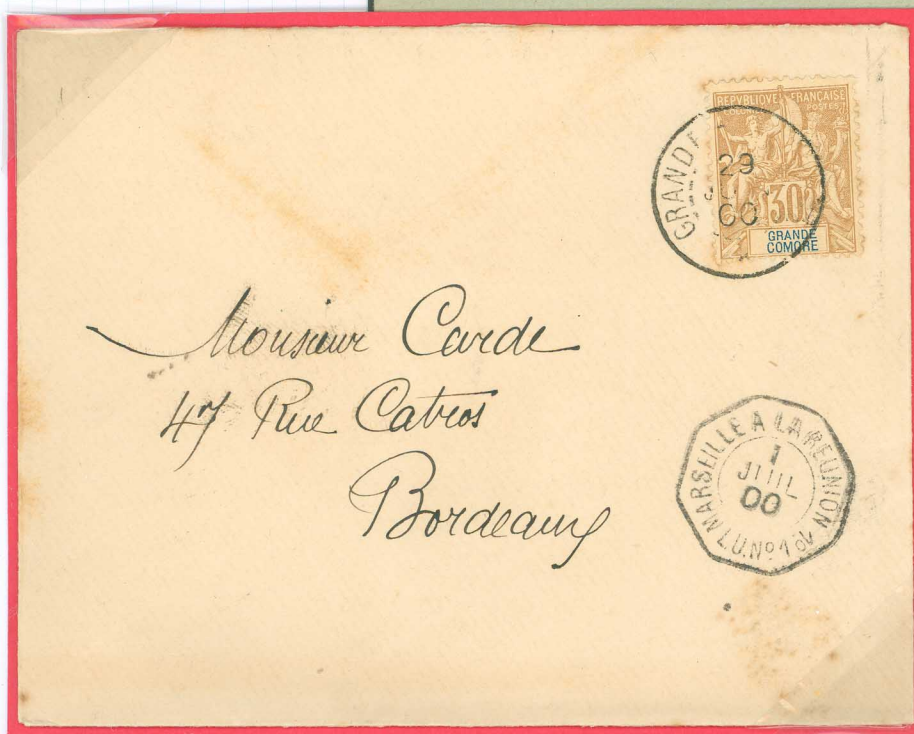 REPVBLIQUE FRANÇAISE
POSTES
30
GRANDE
COMORE
GRANDE
29
00
Monsieur Carde
47 Rue Catros
Bordeaux
MARSEILLE A LA REUNION
1
JUIL
00
L.U.Nº1